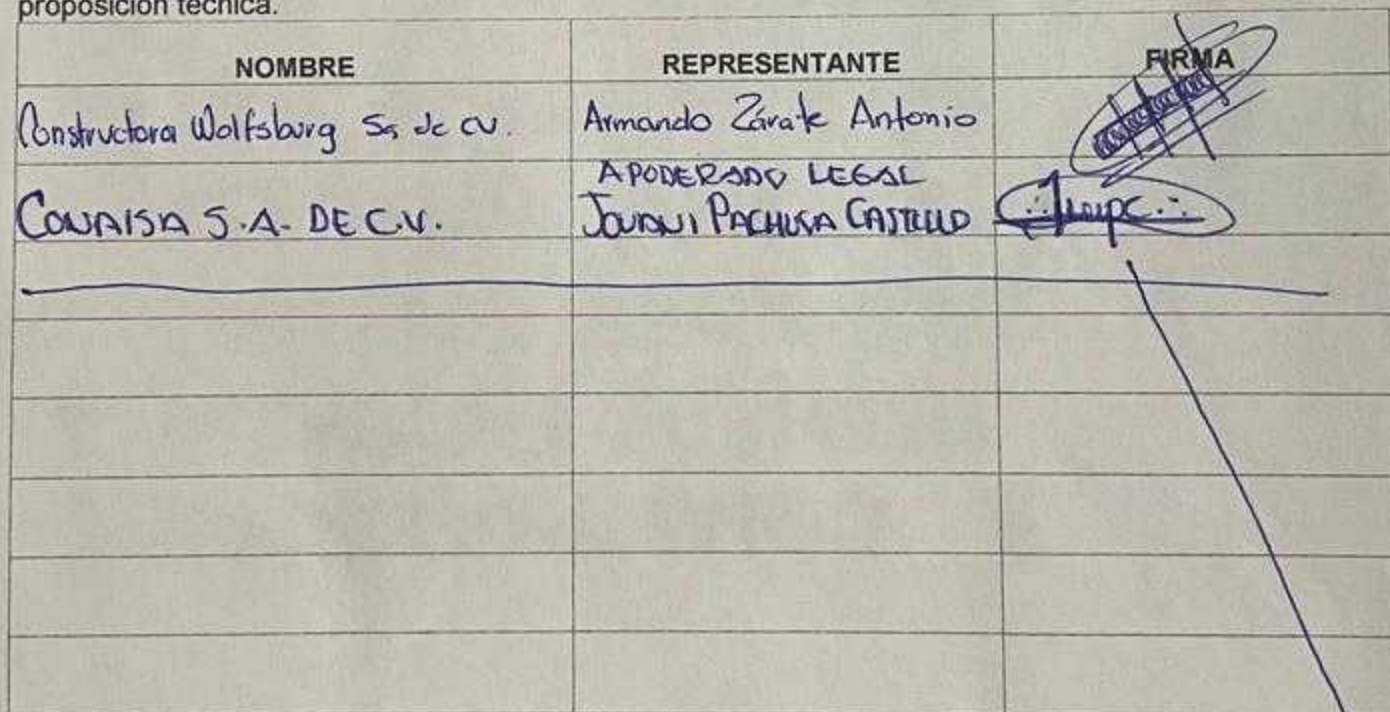 proposición técnica.
NOMBRE REPRESENTANTE FIRMA
Constructora Wolfsburg Sa de cv. Armando Zárate Antonio
APODERADO LEGAL
CONAISA S.A. DE C.V. PACHUCA CASTILLO